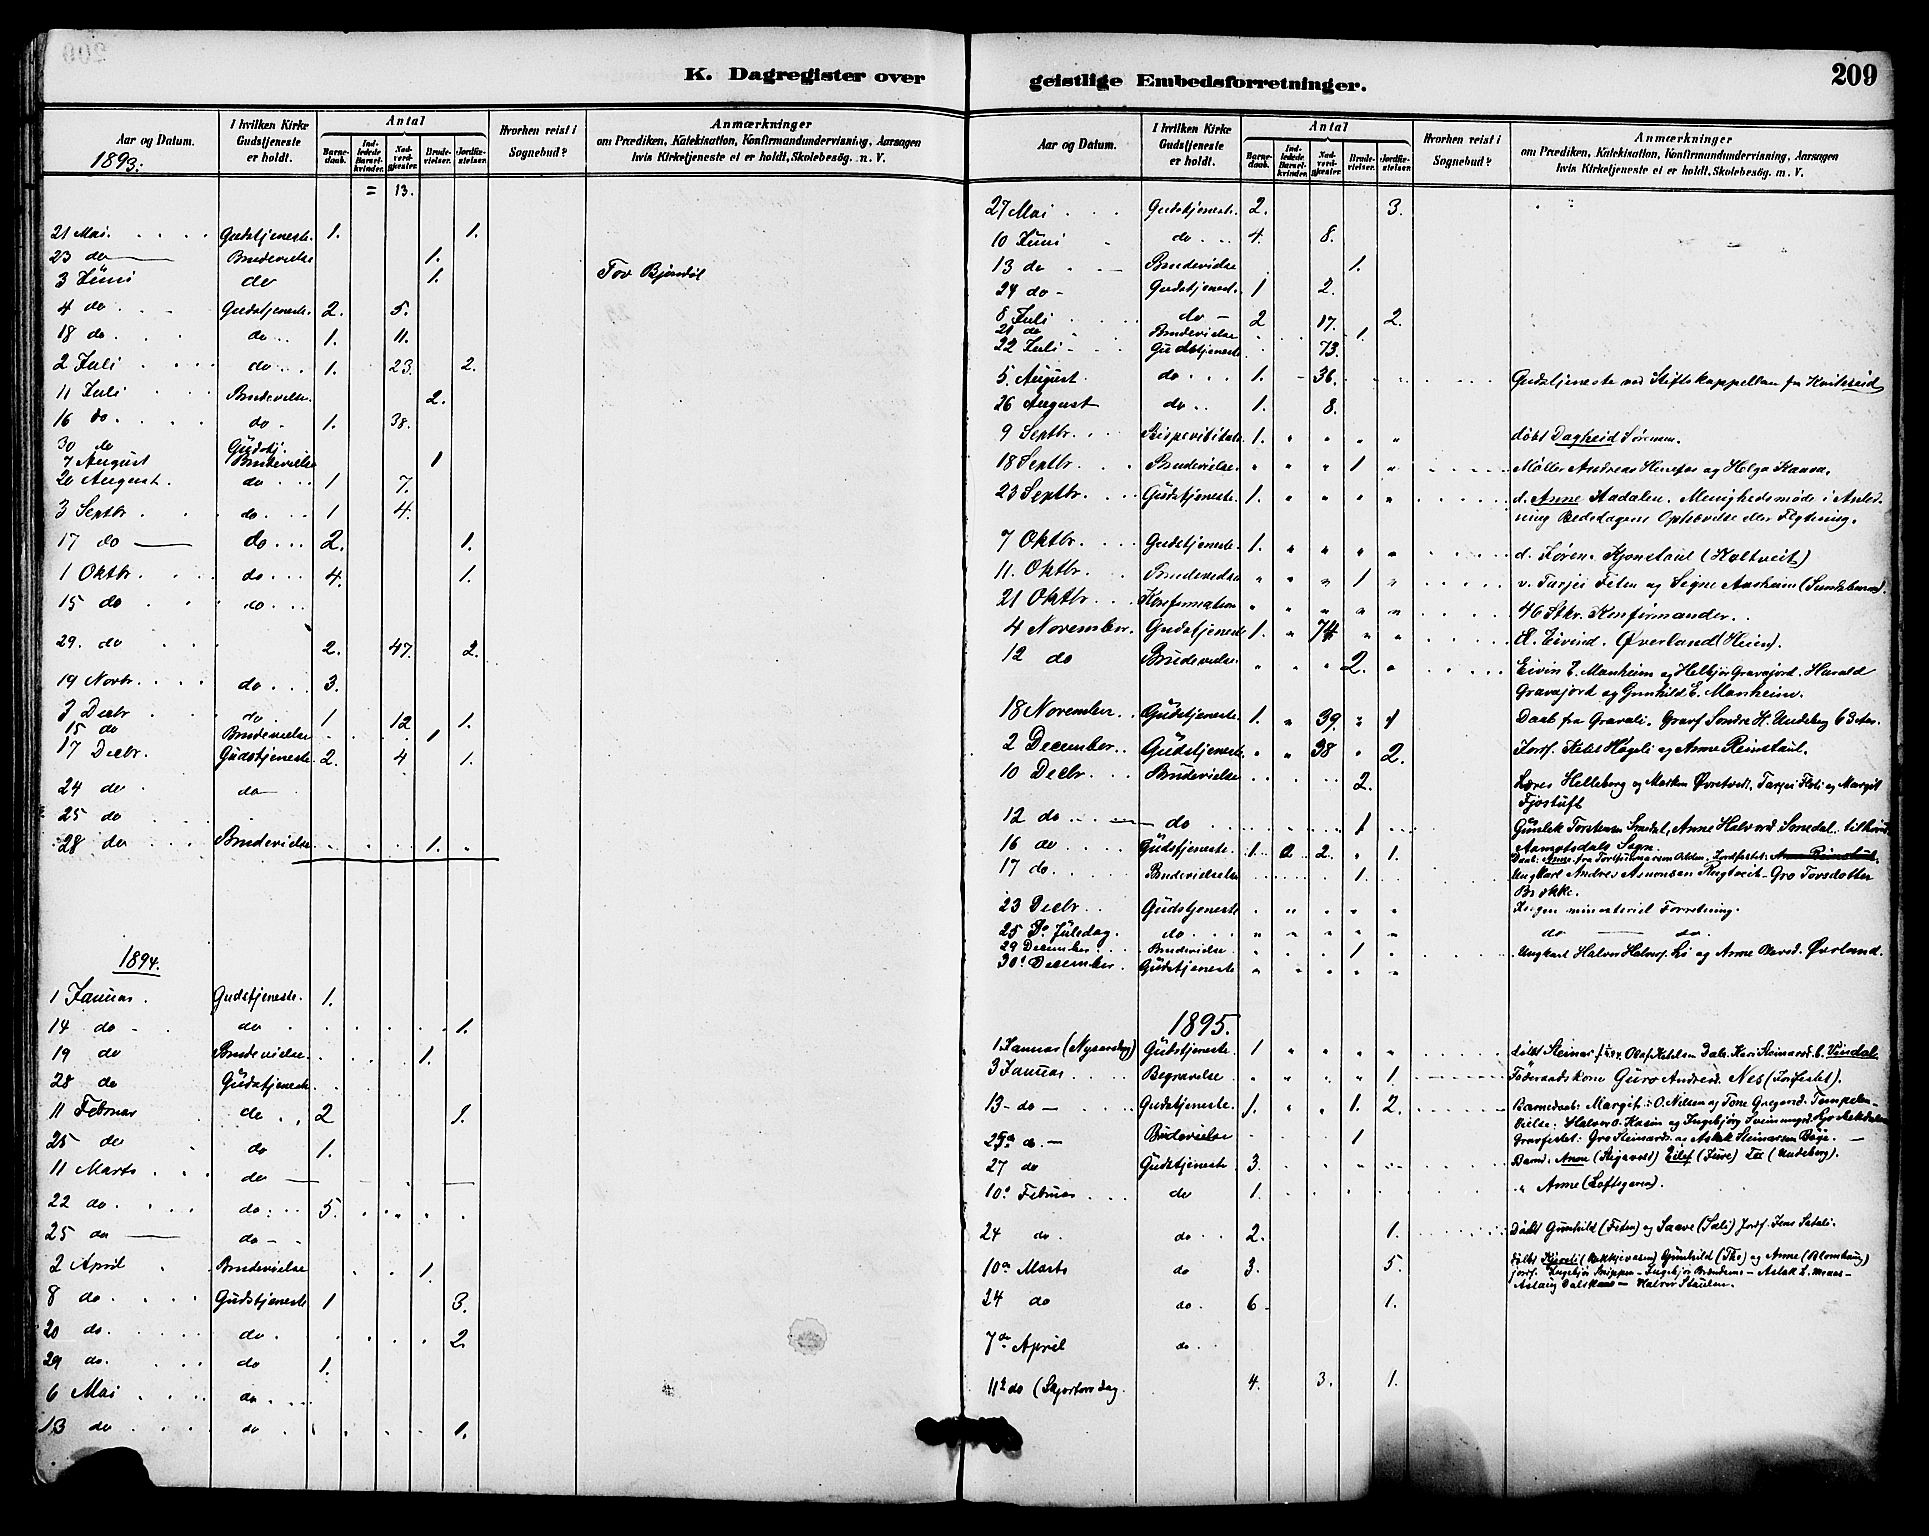 K. Dagregister over
geistlige Embedsforretninger.
209
Aar og Datum.
1893.
I hvilken Kirke Gudstjeneste er holdt.
Antal
Barne-daab.
Ind-ledede Barsel-kvinder.
Nad-verd-gjester.
Brude-vielser.
Jordfæ-stelser.
Hvorhen reist i Sognebud?
Anmærkninger
om Prædiken, Katekisation, Konfirmandundervisning, Aarsagen
hvis Kirketjeneste ei er holdt, Skolebesög. n. V.
= 13.
21 Mai. Gudstjeneste. 1. 1.
23 do Brudevielse 1.
3 Juni do 1. Tov Bjøndöl
4 do Gudstjeneste. 2. 5.
18 do. do 1. 11.
2 Juli do 1. 23. 2.
11 Juli Brudevielse. 2.
16 do. do. 1. 38.
30 do Gudstj.
7 August Brudevielse 1
20 August. do 1 7.
3 Septbr do 1 4.
17 do do 2. 1.
1 Oktbr. do 4. 1.
15 do do
29. do 2. 47. 2.
19 Novbr. do 3.
3 Decbr do 1 12 1.
15 do Brudevielse 1
17 Decbr. Gudstjeneste 2. 4 1.
24 do do
25 do
28 do Brudevielse 1.
1894.
1 Januar. Gudstjeneste. 1.
14 do do 1.
19 do Brudevielse. 1.
28 do Gudstjeneste
11 Februar do 2 1.
25 do do 1.
11 Marts do
22 do do 5.
25 do do
2 April Brudevielse 1.
8 do Gudstjeneste 1 3.
20 do. do. 2.
29 do. do 1.
6 Mai do
13 do do 1.
Aar og Datum.
I hvilken Kirke Gudstjeneste er holdt.
Antal
Barne-daab.
Ind-ledede Barsel-kvinder.
Nad-verd-gjester.
Brude-vielser.
Jordfæ-stelser.
Hvorhen reist i Sognebud?
Anmærkninger
om Prædiken, Katekisation, Konfirmandundervisning, Aarsagen
hvis Kirketjeneste ei er holdt, Skolebesög. n. V.
27 Mai Gudstjeneste. 2. 3.
10 Juni do 4. 8.
13 do Brudevielse 1.
24 do Gudstjenest. 1 2.
8 Juli do 2 17. 2.
21 do Brudevielse 1.
22 Juli Gudstjeneste 73.
5. August. do 1. 36. Gudstjeneste ved Stiftskappellan fra Kviteseid
26 August do 1. 8.
9 Septbr. Bispevisitats 1. döbt Dagheid Sörensen.
18 Septbr. Brudevielse. 1 Møller Andreas
23 Septbr. Gudstjeneste. 1. d. Anne Aadalen. Menighedsmøde i Anled-
ning Bededagens Ophævelse eller Flytning.
7 Oktbr. Gudstjeneste. 1. d. Sören (Kaltveit)
11. Oktbr. Brudevielse 1 v. Tarjei Feten og Signe
21 Oktbr. Konfirmation 46 Stkr. Konfirmander.
4 November. Gudstjeneste 1. 74 d. Eivind. Øverland (Heim).
12 do Brudevielse. 2. Eivin E. Manheim og Helbjör Gravajord. Harald
Gravajord og Gunhild E. Manheim.
18 November. Gudstjeneste. 1. 39. 1 Daab fra Gravali. Gravf. Sondre H. Undeberg 63 Aar.
2 December Gudstjeneste. 38 2. Jordf. Ketil Hageli og Anne Reinstaul.
10 Decbr. Brudevielse 2. Helleberg og Øvretveit. Tarjei Floti og Margit
Fjostuft
12 do. do 1 Gunlek Torstensen Smedal, Anne Halvord Smedal
Aamotsdals Sogn.
16 do Gudstjeneste. 1. 0 2. 1. Daab: Anne
17 do. Brudevielse 1. Ungkarl Andres Aanonsen Rugtveit - Gro Torsdotter
Brokke.
23 Decbr Gudstjeneste Ingen ministeriel Forretning.
25 Juledag. do do do.
29 December Brudevielse 1 Ungkarl Halvor Halvors. Li og Anne Øverland.
30 December. Gudstjeneste
1895.
1. Januar (Nyaarsdag) Gudstjeneste. 1 Döbt Steinar Olaf Ketilsen Dale. Kari Steinarsd. Vindal
3 Januar Begravelse 1. Föderaadskone Guro Andresd. Nes (Jordfestet).
13 do Gudstjeneste. 1. 1. 2. Barnedaab: Margit: O. Nilsen og Tone Gregard.
Vielse: Halvor O. og Ingebjørg
25 do. Brudevielse 1 Gravfestet: Gro Steinarsd. og Aslak Steinarsen
27 do Gudstjeneste 3. Barnd. Anne Eilef (Undeberg).
10 Februar do 1. " Anne (Loftsgaren).
24 do. do. 2. 1. Döbt Gunhild (Feten) og Saave (Sali) Jordf. Jens Satali.
10 Marts do 3. 5. Gunhild og Anne (Blomhaug)
jordf. Ingebjör
Aslaug Dalskaas - Halvor Staulen.
24 do do. 6 1.
7 April do
11 do (Skjærtorsdag. 4. 3. 1.